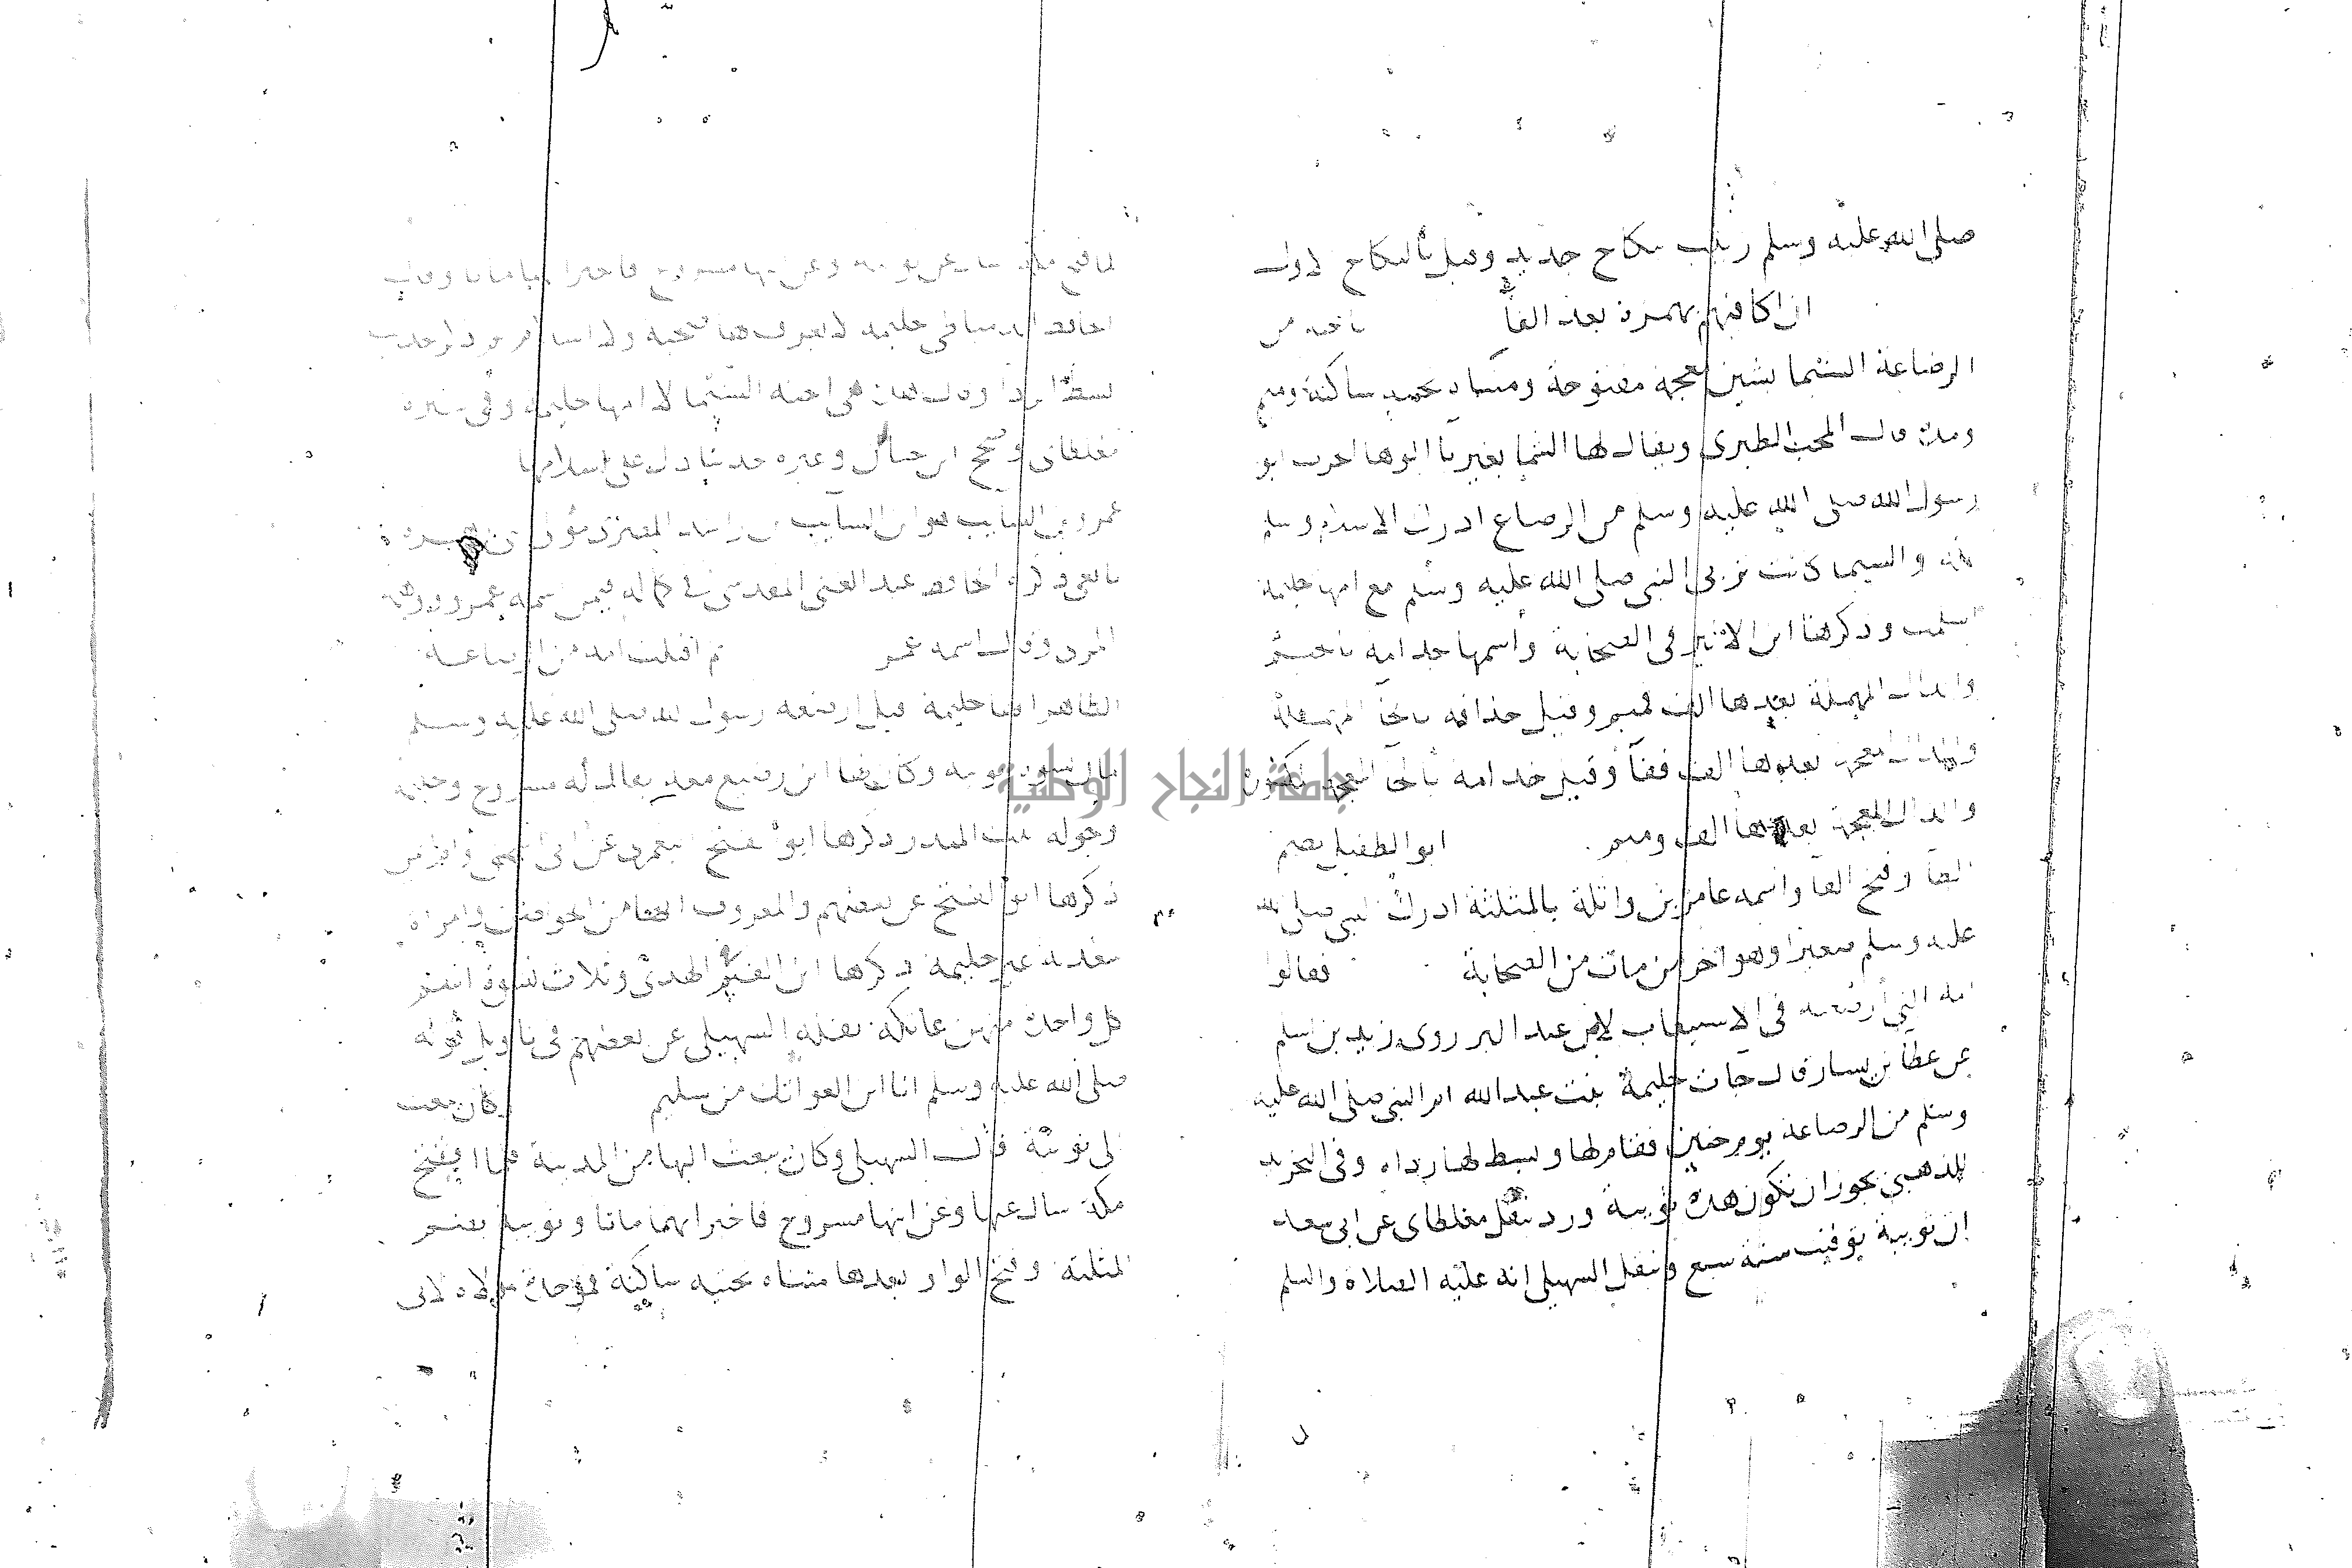 صلى الله عليه وسلم زينب بنكاح جديد وقيل بالنكاح الاول
اذ اكافيهم بهمزة بعد الفا اخته من
الرضاعة الشيما بشين معجمة مفتوحة ومثناة تحتية ساكنة وميم
ومدة قال المحب الطبري ويقال لها الشما بغير يا ابوها الحرث ابو
رسول الله صلى الله عليه وسلم من الرضاع ادرك الاسلام وسلم
والشيما كانت تربي النبي صلى الله عليه وسلم مع امها حليمة
اسلمت وذكرها ابن الاثير في الصحابة واسمها جدامة بالجيم
والدال المهملة بعدها الف فميم وقيل حذافه بالحا المهملة
والذال المعجمة بعدها الف ففا وقيل خدامه بالخا المعجمة
والدال المعجمة بعدها الف وميم ابو الطفيل بضم
الطا وفتح الفا واسمه عامر بن واثلة بالمثلثة ادرك النبي صلى الله
عليه وسلم صغيرا وهو اخر من مات من الصحابة فقالوا
امه التي ارضعته في الاستيعاب لابن عبد البر روى زيد بن اسلم
عن عطا بن يسار قال جات حليمة بنت عبد الله ام النبي صلى الله عليه
وسلم من الرضاعة يوم حنين فقام لها وبسط لها رداه وفي التجريد
للذهبي يجوز ان تكون هذه ثويبة ورد بنقل مغلطاي عن ابن سعد
ان ثويبة توفيت سنة سبع ونقل السهيلي انه عليه الصلاة والسلم
لما فتح مكة سال عن ثويبة وعن ابنها مسروح فاخبر انهما ماتا وقال
الحافظ الدمياطي حليمة لا يعرف لها صحبة ولا اسلام
بسط لها ردا وقال هذه هي اخته الشيما لا امها حليمة وفي سيرة
مغلطاي وصحح ابن حبان وغيره حديثا دل على اسلامها
عمرو بن السايب هو ابن السايب بن راشد المصري مولى بني زهرة
تابعي ذكره الحافظ عبد الغني المقدسي في كماله فيمن اسمه عمرو وتبعه
المزي وقال اسمه عمر ثم اقبلت امه من الرضاعة
الظاهر انها حليمة قيل ارضعه رسول الله صلى الله عليه وسلم
ثمان نسوة ثويبة وكان لها ابن رضيع معه يقال له مسروح وحليمة
وخولة بنت المنذر ذكرها ابو الفتح اليعمري عن ابي اسحق وام ايمن
ذكرها ابو الفتح عن بعضهم والمعروف انها من الحواضن وامراة
سعدية غير حليمة ذكرها ابن القيم في الهدي وثلاث نسوة اسم
كل واحدة منهن عاتكة نقله السهيلي عن بعضهم في تاويل قوله
صلى الله عليه وسلم انا ابن العواتك من سليم وكان يبعث
الى ثويبة قال السهيلي وكان يبعث اليها من المدينة فلما افتتح
مكة سال عنها وعن ابنها مسروح فاخبر انهما ماتا وثويبة بضم
المثلثة وفتح الواو بعدها مثناه تحتيه ساكنة فموحدة مولاة لابي
جامعة النجاح الوطنية